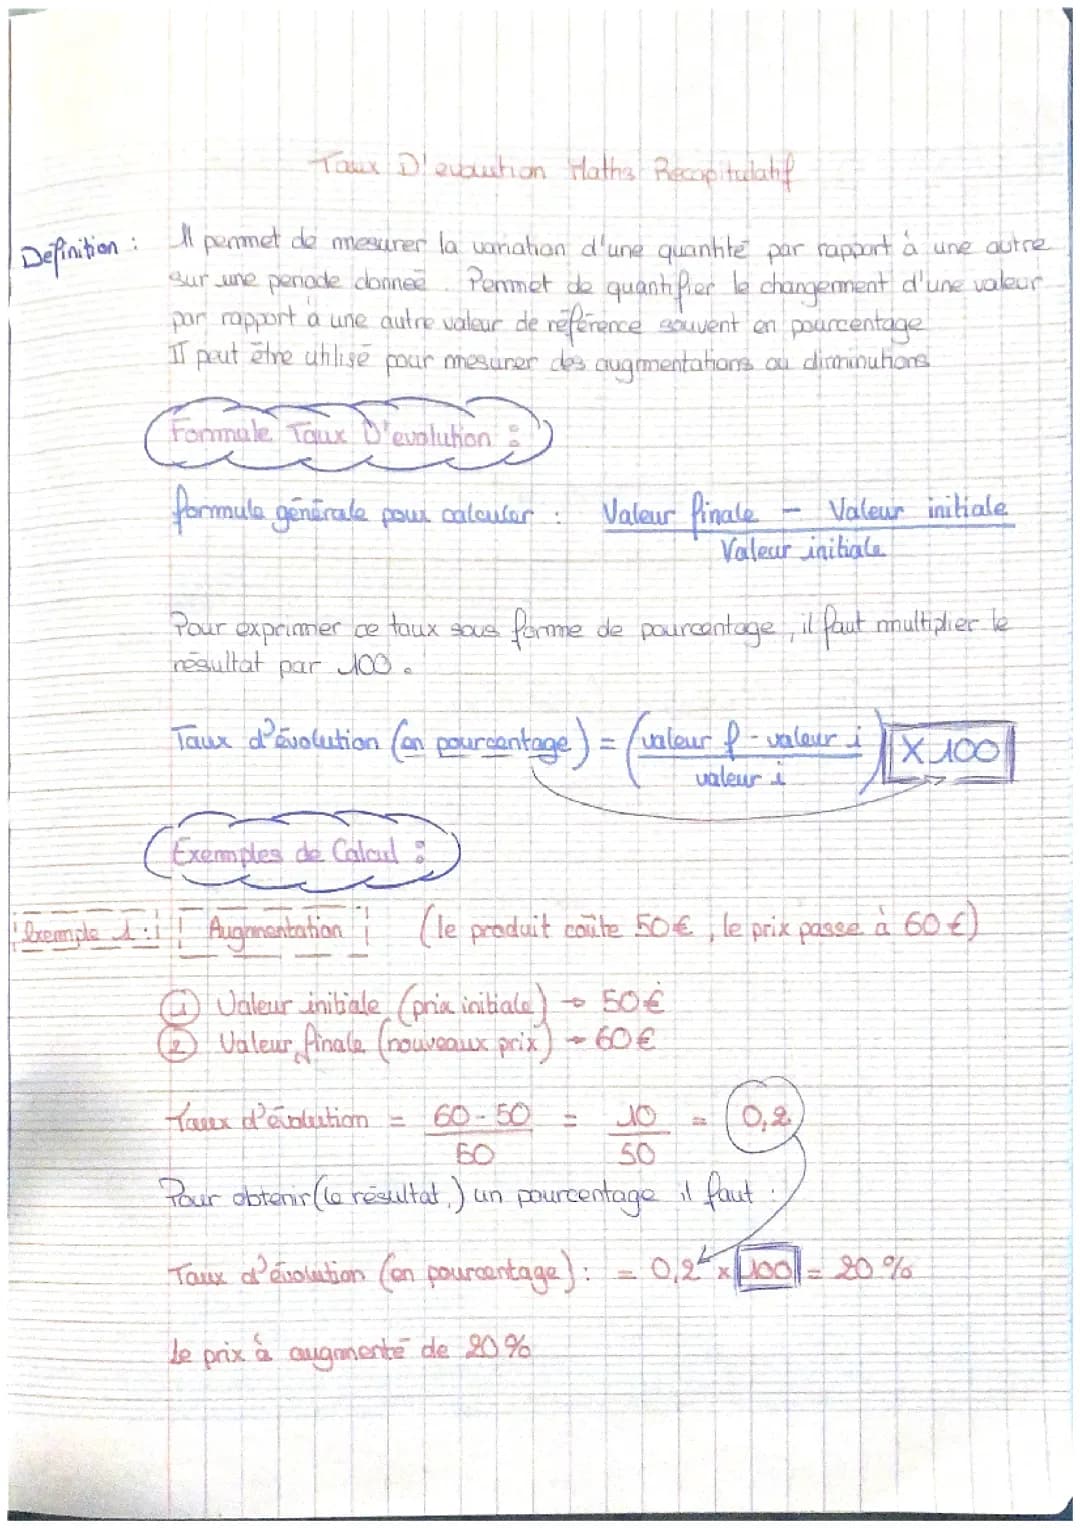 Taux D'evolution Maths Récapitulatif
Definition : Il permet de mesurer la variation d'une quantité par rapport à une autre
sur une periode donnée. Permet de quantifier le changement d'une valeur
par rapport à une autre valeur de référence souvent en pourcentage
Il peut être utilisé pour mesurer des augmentations ou diminutions
Formule Taux D'evolution :
formule générale pour calculer : Valeur finale - Valeur initiale
Valeur initiale
Pour exprimer ce taux sous forme de pourcentage, il faut multiplier le
résultat par 100.
Taux d'évolution (en pourcentage) = (valeur f - valeur i) X 100
valeur i
Exemples de Calcul :
Exemple 1 : Augmentation (le produit coûte 50€, le prix passe à 60€)
1 Valeur initiale (prix initiale) → 50€
2 Valeur finale (nouveaux prix) → 60€
Taux d'évolution = 60-50 = 10 = 0,2
50 50
Pour obtenir (le résultat,) un pourcentage il faut :
Taux d'évolution (en pourcentage) : = 0,2 x 100 = 20%
Le prix à augmenté de 20%